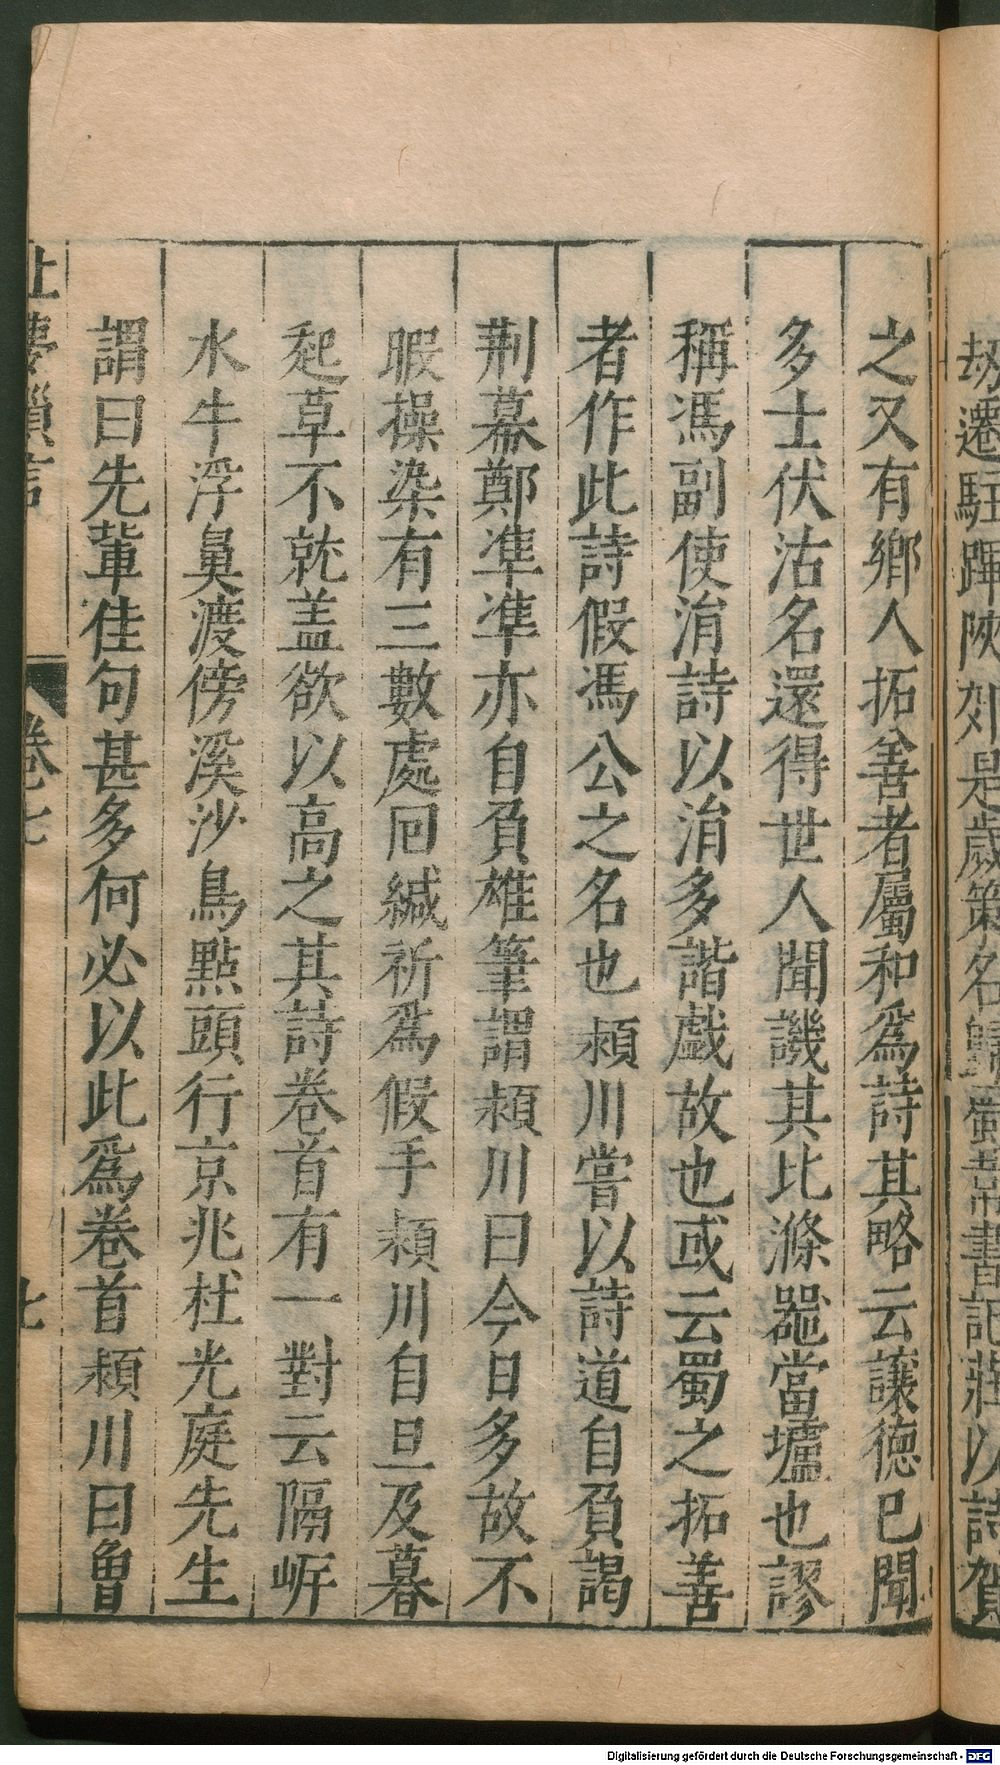 劫遷駐蹕陜郊是歲策名歸蜀韋書記莊以詩賀
之又有鄉人拓善者屬和爲詩其略云讓德已聞
多士伏沽名還得世人聞譏其比滌噐當壚也謬
稱馮副使涓詩以涓多諧戲故也或云蜀之拓善
者作此詩假馮公之名也頴川嘗以詩道自負謁
荆幕鄭凖凖亦自負雄筆謂頴川曰今日多故不
暇操染有三數處囘緘祈爲假手頴川自旦及暮
起草不就盖欲以高之其詩卷首有一對云隔岍
水牛浮鼻渡傍溪沙鳥點頭行京兆杜光庭先生
謂曰先輩佳句甚多何必以此爲卷首頴川曰曾
北夢瑣言 卷七 七
Digitalisierung gefördert durch die Deutsche Forschungsgemeinschaft - DFG